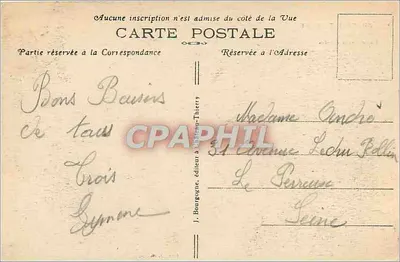 Aucune inscription n'est admise du côté de la Vue
CARTE POSTALE
Partie réservée à la Correspondance
Réservée à l'Adresse
Bons Baisers
de tous
Trois
Symone
J. Bourgogne, éditeur à Thierry
CPAPHIL
Madame André
31 Avenue Ledru Rollin
Le Perreux
Seine